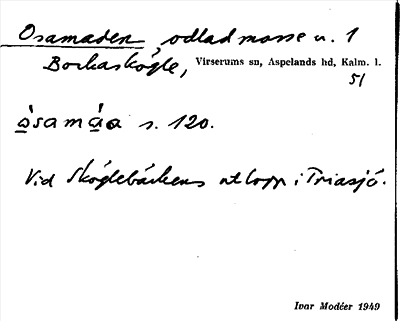 Osamaden, odlad mosse u. 1
Borkaskögle, Virserums sn, Aspelands hd, Kalm. l.
51
ȯsamȧa s. 120.
Vid Sköglebäckens utlopp i Triasjö.
Ivar Modéer 1949